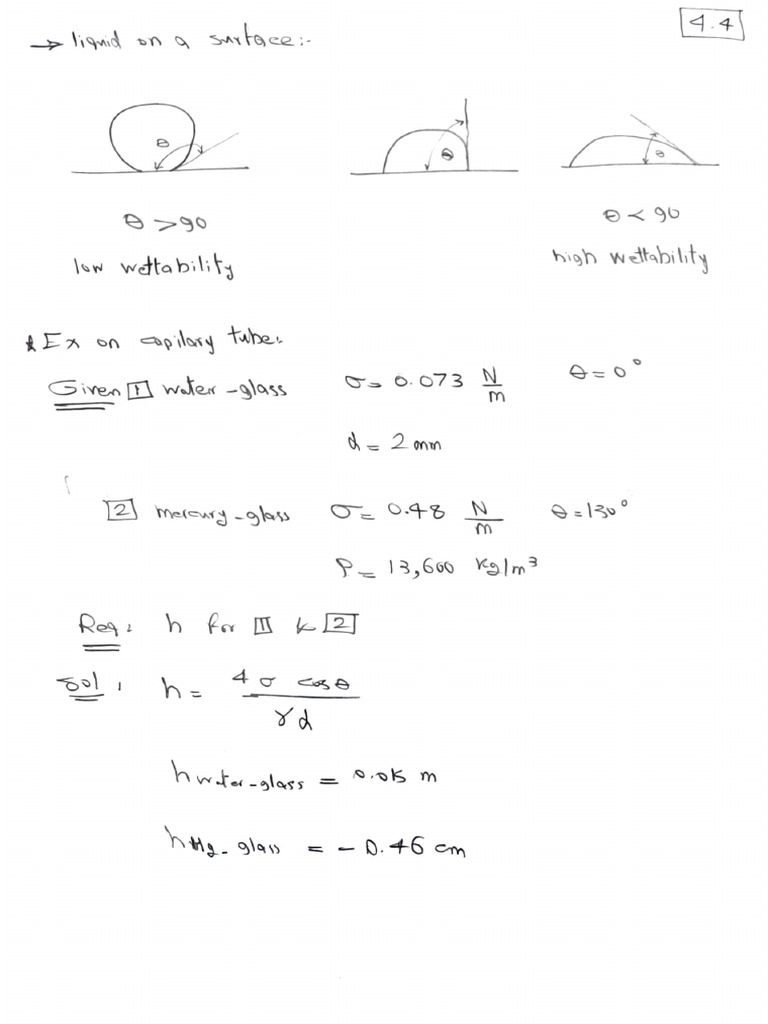 4.4
→ liquid on a surface:-
θ
θ
θ
θ > 90
θ < 90
low wettability
high wettability
* Ex on capilary tube:
Given 1 water-glass σ = 0.073 N/m θ = 0°
d = 2 mm
2 mercury-glass σ = 0.48 N/m θ = 130°
ρ = 13,600 kg/m³
Req: h for 1 & 2
Sol: h = 4 σ cos θ / γ d
h water-glass = 0.015 m
h Hg-glass = - 0.46 cm